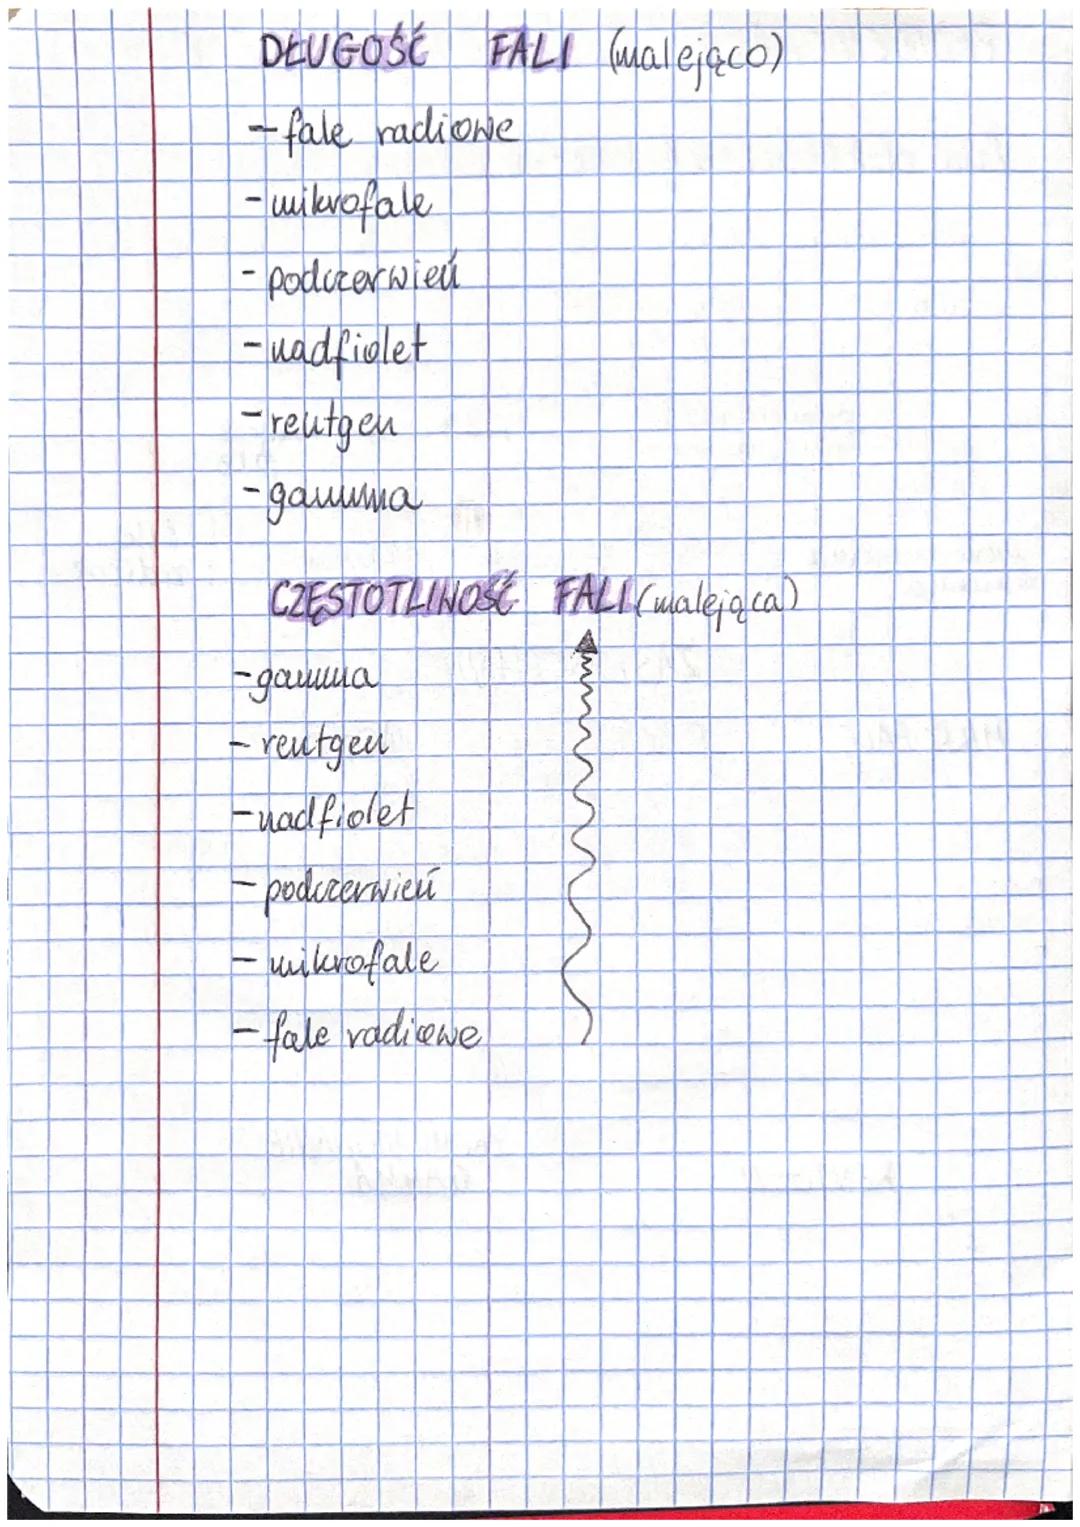 DŁUGOŚĆ FALI (malejąco)
- fale radiowe
- mikrofale
- podczerwień
- nadfiolet
- rentgen
- gamma
CZĘSTOTLIWOŚĆ FALI (malejąca)
- gamma
- rentgen
- nadfiolet
- podczerwień
- mikrofale
- fale radiowe